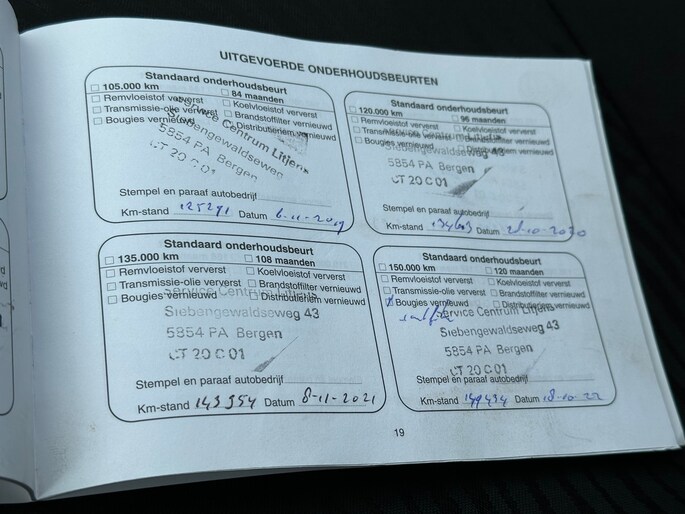 UITGEVOERDE ONDERHOUDSBEURTEN
Standaard onderhoudsbeurt
105.000 km 84 maanden
Remvloeistof ververst Koelvloeistof ververst
Transmissie-olie ververst Brandstoffilter vernieuwd
Bougies vernieuwd Distributieriem vernieuwd
Service Centrum Litjens
Siebengewaldseweg
5854 PA Bergen
CT 20 C 01
Stempel en paraaf autobedrijf
Km-stand 125291 Datum 6-11-2019
Standaard onderhoudsbeurt
120.000 km 96 maanden
Remvloeistof ververst Koelvloeistof ververst
Transmissie-olie ververst Brandstoffilter vernieuwd
Bougies vernieuwd Distributieriem vernieuwd
Service Centrum Litjens
Siebengewaldseweg 43
5854 PA Bergen
CT 20 C 01
Stempel en paraaf autobedrijf
Km-stand Datum
Standaard onderhoudsbeurt
135.000 km 108 maanden
Remvloeistof ververst Koelvloeistof ververst
Transmissie-olie ververst Brandstoffilter vernieuwd
Bougies vernieuwd Distributieriem vernieuwd
Service Centrum Litjens
Siebengewaldseweg 43
5854 PA Bergen
CT 20 C 01
Stempel en paraaf autobedrijf
Km-stand 143954 Datum 8-11-2021
Standaard onderhoudsbeurt
150.000 km 120 maanden
Remvloeistof ververst Koelvloeistof ververst
Transmissie-olie ververst Brandstoffilter vernieuwd
Bougies vernieuwd Distributieriem vernieuwd
Service Centrum Litjens
Siebengewaldseweg 43
5854 PA Bergen
CT 20 C 01
Stempel en paraaf autobedrijf
Km-stand 149434 Datum 18-10-22
19